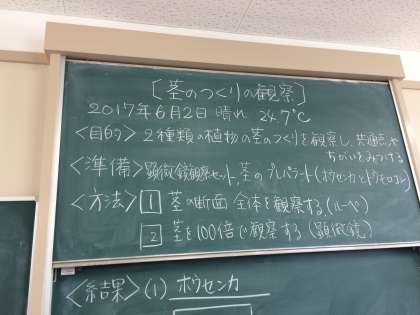 [茎のつくりの観察]
2017年6月2日 晴れ 24.7℃
<目的> 2種類の植物の茎のつくりを観察し、共通点や
ちがいをみつける
<準備> 顕微鏡観察セット、茎のプレパラート(ホウセンカ、トウモロコシ)
<方法> 1 茎の断面全体を観察する。(ルーペ)
2 茎を100倍で観察する (顕微鏡)
<結果> (1) ホウセンカ